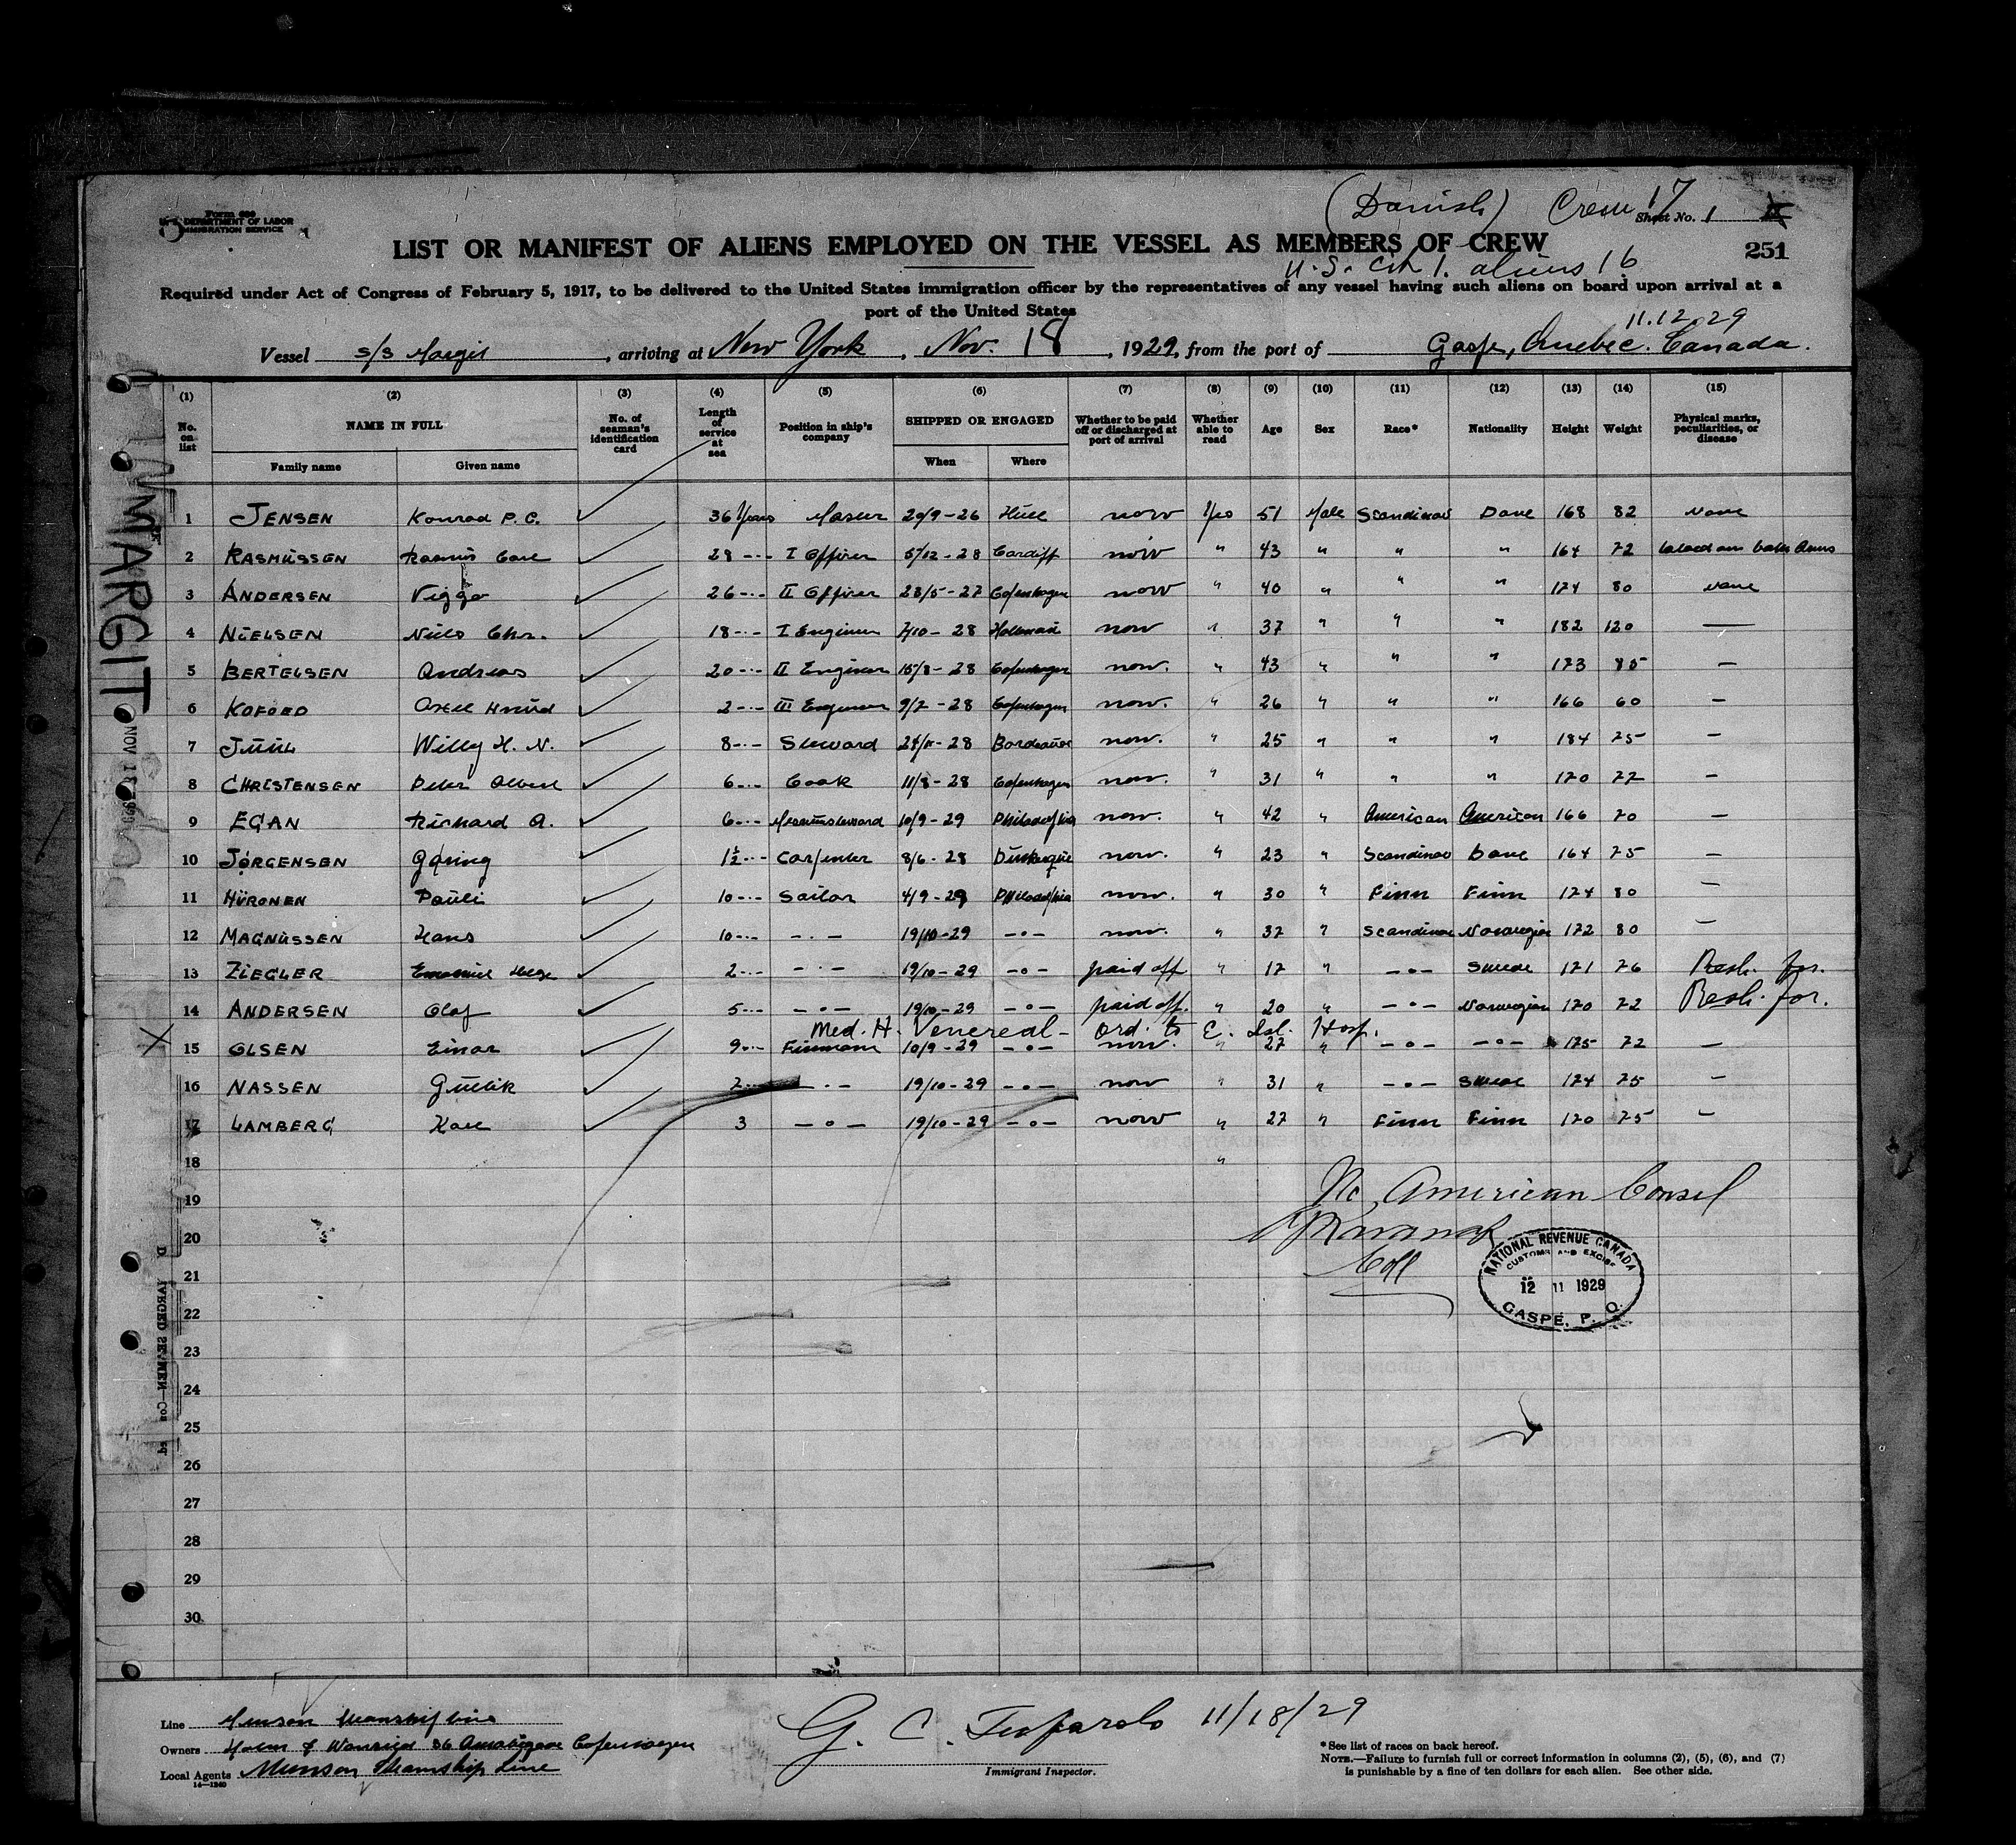 Form 680
U. S. DEPARTMENT OF LABOR
IMMIGRATION SERVICE
(Danish) Crew 17
Sheet No. 1
LIST OR MANIFEST OF ALIENS EMPLOYED ON THE VESSEL AS MEMBERS OF CREW
251
U.S. Cit 1. aliens 16
Required under Act of Congress of February 5, 1917, to be delivered to the United States immigration officer by the representatives of any vessel having such aliens on board upon arrival at a
port of the United States
11.12.29
Vessel S/S Margit, arriving at New York, Nov. 18, 1929, from the port of Gaspe, Quebec. Canada.
MARGIT
NOV 18 1929
(1) (2) (3) (4) (5) (6) (7) (8) (9) (10) (11) (12) (13) (14) (15)
No. on list NAME IN FULL No. of seaman's identification card Length of service at sea Position in ship's company SHIPPED OR ENGAGED Whether to be paid off or discharged at port of arrival Whether able to read Age Sex Race* Nationality Height Weight Physical marks, peculiarities, or disease
Family name Given name When Where
1 JENSEN Konrad P. C. 36 Years Master 20/9-26 Hull now Yes 51 Male Scandinav Dane 168 82 None
2 RASMUSSEN Rasmus Carl 28 -"- I Officer 5/12-28 Cardiff now " 43 " " " 164 72 both Arms
3 ANDERSEN Viggo 26 -"- II Officer 28/5-27 Copenhagen now " 40 " " " 174 80 None
4 NIELSEN Niels Chr. 18 -"- I Engineer 7/10-28 now " 37 " " " 182 120 —
5 BERTELSEN Andreas 20 -"- II Engineer 15/8-28 Copenhagen now. " 43 " " " 173 85 —
6 KOFOED Axel Knud 2 -"- III Engineer 9/7-28 Copenhagen now. " 26 " " " 166 60 —
7 JUUL Willy H. N. 8 -"- Steward 24/11-28 Bordeaux now. " 25 " " " 184 75 —
8 CHRISTENSEN Peter Albert 6 -"- Cook 11/8-28 Copenhagen now. " 31 " " " 170 77 —
9 EGAN Richard A. 6 -"- Messroomsteward 10/9-29 Philadelphia now. " 42 " American American 166 70 —
10 JØRGENSEN 1½ -"- Carpenter 8/6-28 Dunkerque now. " 23 " Scandinav Dane 164 75 —
11 HURONEN Pauli 10 -"- Sailor 4/9-29 Philadelphia now. " 30 " Finn Finn 174 80 —
12 MAGNUSSEN Hans 10 -"- -"- 19/10-29 -"- now. " 37 " Scandinav Norwegian 172 80 —
13 ZIEGLER Emanuel Helge 2 -"- -"- 19/10-29 -"- paid off " 17 " -"- Swede 171 76 Resh. for.
14 ANDERSEN Olaf 5 -"- -"- 19/10-29 -"- paid off. " 20 " -"- Norwegian 170 72 Resh. for.
Med. H. Venereal - Ord. to E. Isl. Hosp.
X 15 OLSEN Einar 9 -"- Firemann 10/9-29 -"- now. " 27 " -"- -"- 175 72 —
16 NASSEN 2 -"- -"- 19/10-29 -"- now " 31 " -"- Swede 174 75 —
17 LAMBERG Karl 3 -"- 19/10-29 -"- now " 27 " Finn Finn 170 75 —
18 "
19 No American Consul
20
Coll
NATIONAL REVENUE CANADA
CUSTOMS AND EXCISE
12 11 1929
GASPÉ, P. Q.
21
22
23
24
25
26
27
28
29
30
Line Munson Steamship Line
Owners Holm & Wonsild Copenhagen
Local Agents Munson Steamship Line
14—1240
G. C. 11/18/29
Immigrant Inspector.
*See list of races on back hereof.
NOTE.—Failure to furnish full or correct information in columns (2), (5), (6), and (7)
is punishable by a fine of ten dollars for each alien. See other side.